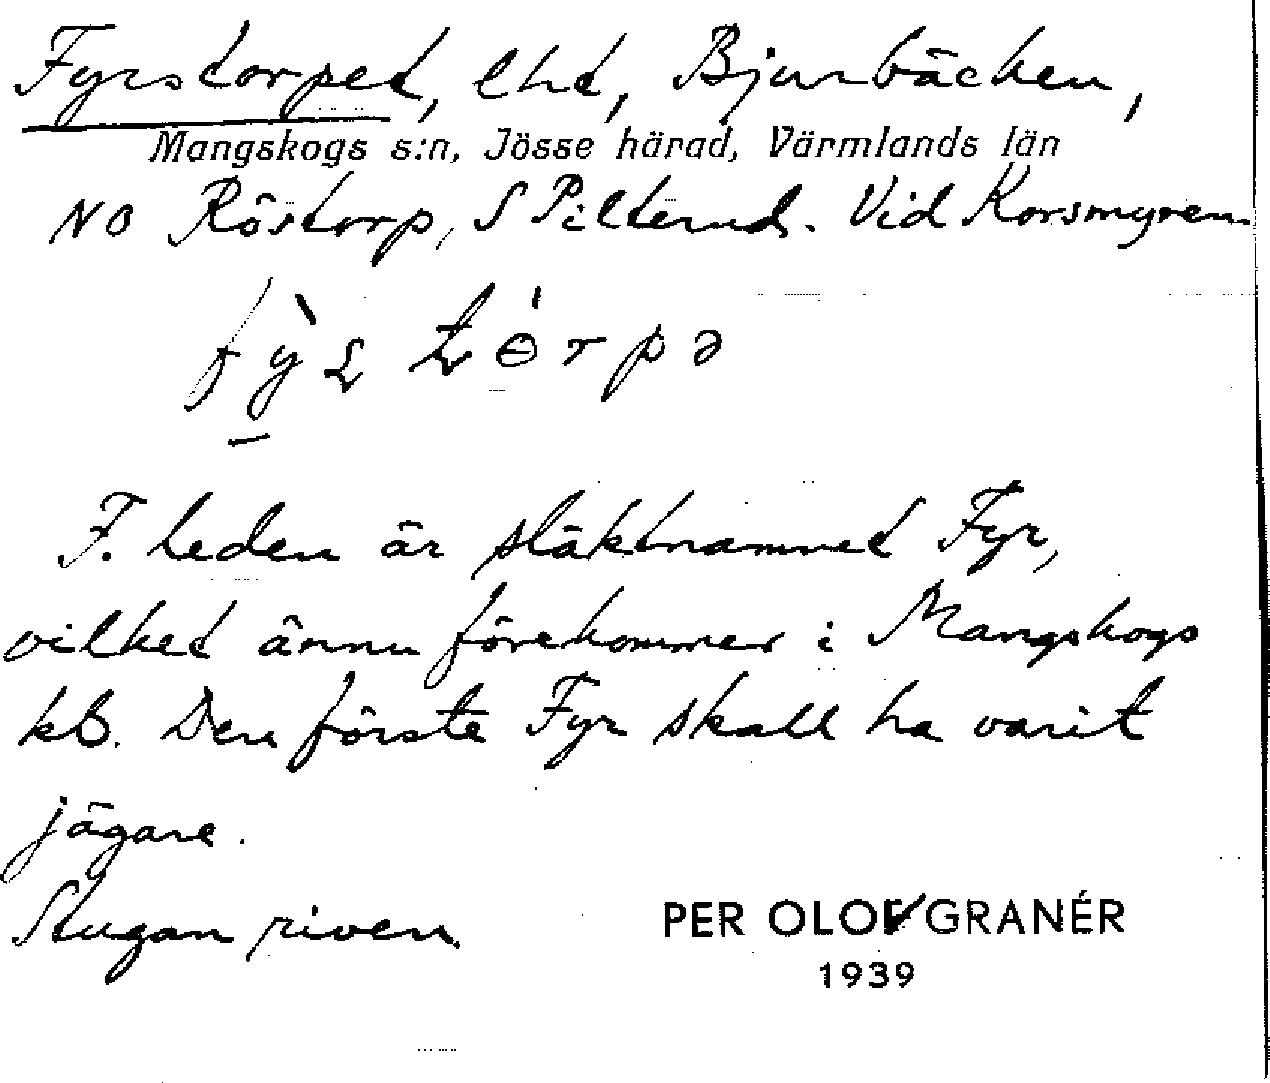 Fyrstorpet, lht, Bjurbäcken,
Mangskogs s:n, Jösse härad, Värmlands län
NO Röstorp, S Pilterud. Vid Korsmyren
F. leden är släktnamnet Fyr,
vilket ännu förekommer i Mangskogs
kb. Den förste Fyr skall ha varit
jägare.
Stugan riven.
PER OLOF GRANÉR
1939